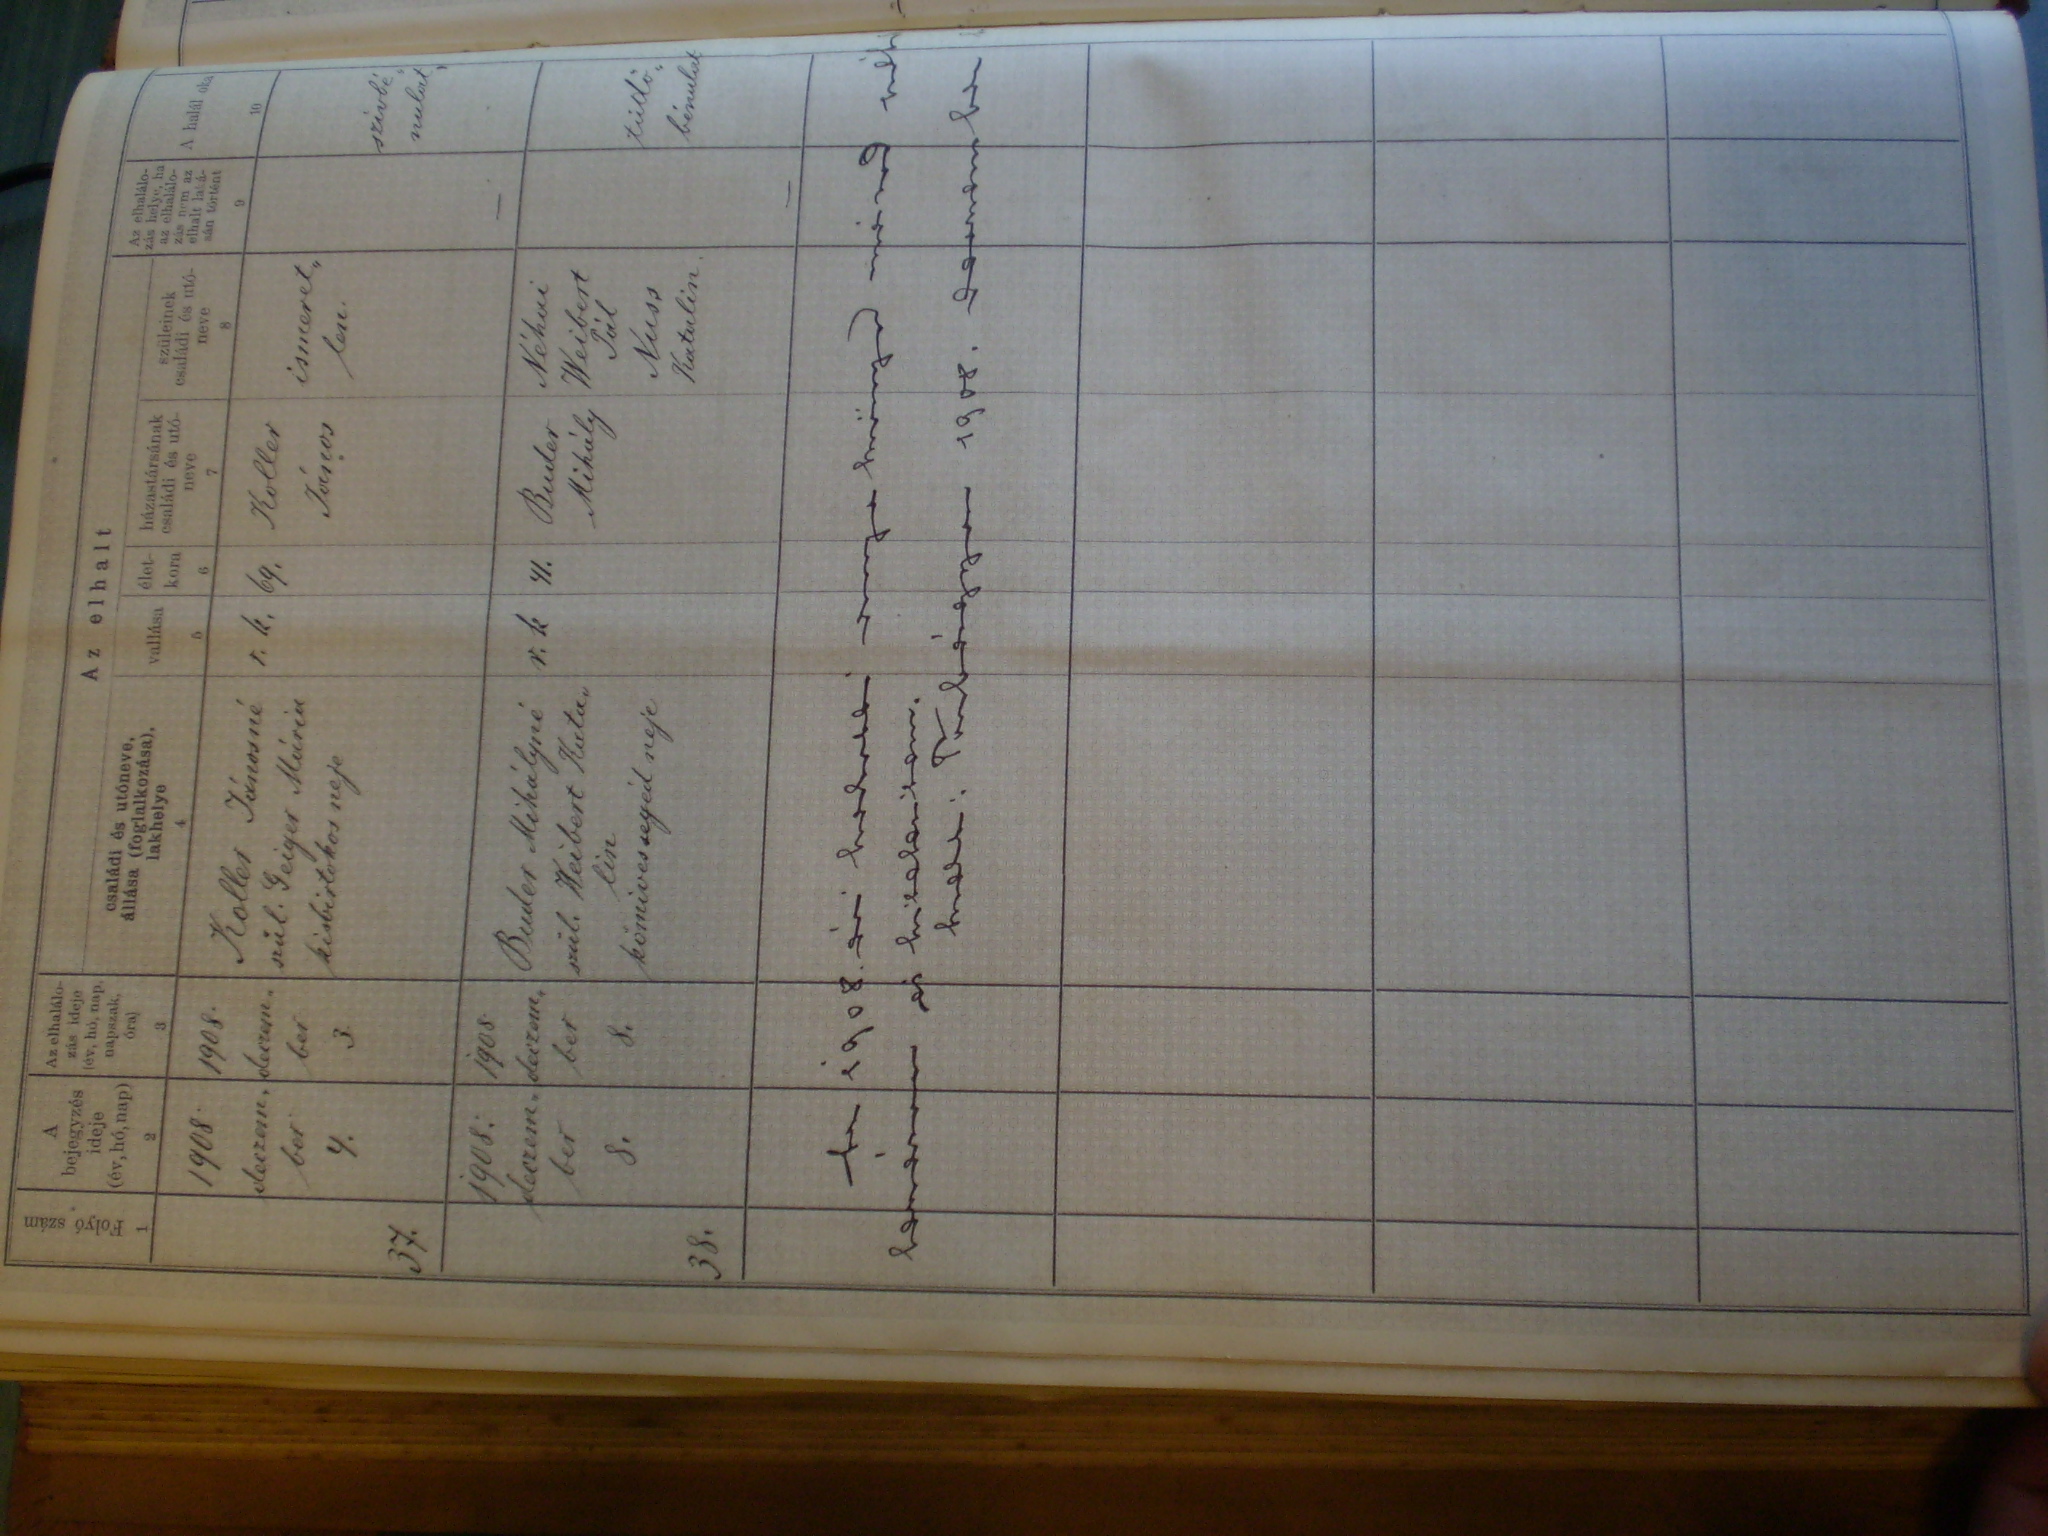 Az elhalt
Folyó szám
1
A
bejegyzés
ideje
(év, hó, nap)
2
Az elhalálo-
zás ideje
(év, hó, nap,
napszak,
óra)
3
családi és utóneve,
állása (foglalkozása),
lakhelye
4
vallása
5
élet-
kora
6
házastársának
családi és utó-
neve
7
szüleinek
családi és utó-
neve
8
Az elhalálo-
zás helye, ha
az elhalálo-
zás nem az
elhalt laká-
sán történt
9
A halál oka
10
37.
1908.
deczem„
ber
4.
1908.
deczem„
ber
3
Koller Jánosné
szül. Geiger Mária
kisbirtokos neje
r. k.
69.
Koller
János
ismeret„
len.
—
szivbé„
nulat„
38.
1908.
deczem„
ber
8.
1908
deczem„
ber
8.
Buder Mihályné
szül. Weibert Kata„
lin
kőmivessegéd neje
r. k
41.
Buder
Mihály
Néhai
Weibert
Pál
Nuss
Katalin.
—
tüdő„
bénulat
1908. évi
és hitelesitem.
1908.